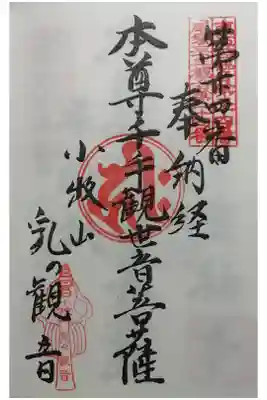 第廿四番
奉納経
本尊千手観世音菩薩
小牧山
乳の観音